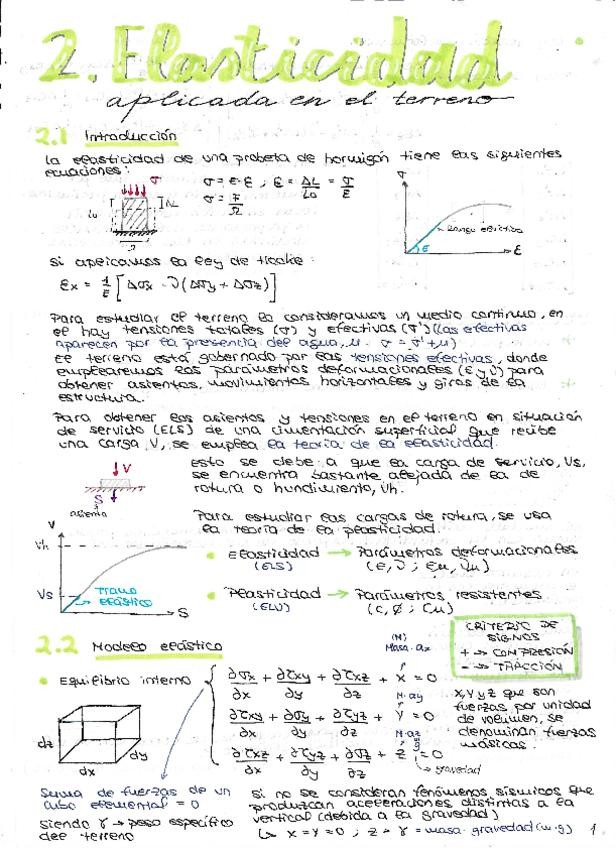 2. Elasticidad
aplicada en el terreno
2.1 Introducción
La elasticidad de una probeta de hormigón tiene las siguientes
ecuaciones:
σ = E·ε ; ε = ΔL/L₀ = σ/E
σ = F/Ω
σ
ΔL
L₀
Ω
σ
Rango elástico
E
ε
Si aplicamos la ley de Hooke:
εx = 1/E [Δσx - ν(Δσy + Δσz)]
Para estudiar el terreno lo consideramos un medio continuo, en
el hay tensiones totales (σ) y efectivas (σ') (las efectivas
aparecen por la presencia del agua, μ. σ = σ' + μ)
El terreno está gobernado por las tensiones efectivas, donde
emplearemos los parámetros deformacionales (E y ν) para
obtener asientos, movimientos horizontales y giros de la
estructura.
Para obtener los asientos y tensiones en el terreno en situación
de servicio (ELS) de una cimentación superficial que recibe
una carga, V, se emplea la teoría de la elasticidad.
V
S
asiento
Esto se debe a que la carga de servicio, Vs,
se encuentra bastante alejada de la de
rotura o hundimiento, Vh.
Para estudiar las cargas de rotura, se usa
la teoría de la plasticidad.
V
Vh
Vs
Tramo
elástico
S
• Elasticidad → Parámetros deformacionales
(ELS) (E, ν ; Eu, νu)
• Plasticidad → Parámetros resistentes
(ELU) (c, ø ; Cu)
2.2 Modelo elástico
CRITERIO DE
SIGNOS
+ → COMPRESIÓN
- → TRACCIÓN
• Equilibrio interno
(M)
Masa·ax
∂σx/∂x + ∂τxy/∂y + ∂τxz/∂z + X = 0
M·ay
∂τxy/∂x + ∂σy/∂y + ∂τyz/∂z + Y = 0
M·az
g
∂τxz/∂x + ∂τyz/∂y + ∂σz/∂z + Z = 0
→ gravedad
X, Y y Z que son
fuerzas por unidad
de volumen, se
denominan fuerzas
másicas.
dz
dx
dy
Suma de fuerzas de un
cubo elemental = 0
siendo γ → peso específico
del terreno
Si no se consideran fenómenos sísmicos que
produzcan aceleraciones distintas a la
vertical (debida a la gravedad)
↳ X = Y = 0 ; Z = γ = masa·gravedad (m·g)
1